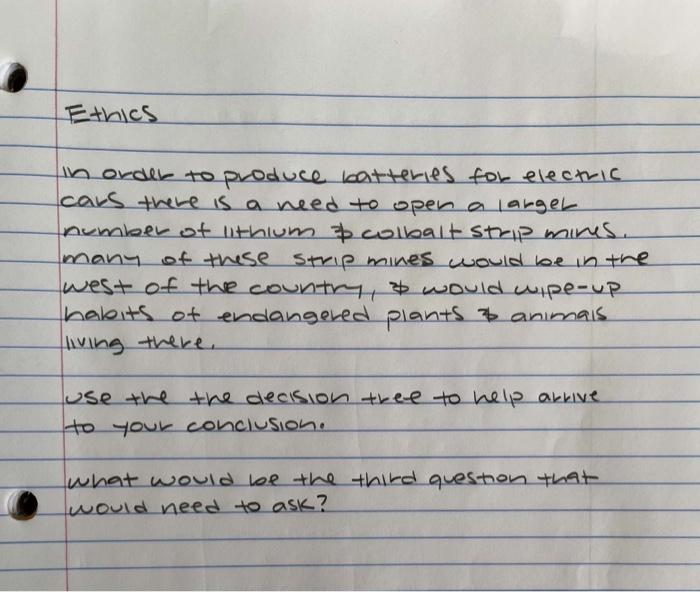 Ethics
in order to produce batteries for electric
cars there is a need to open a larger
number of lithium & colbalt strip mines.
many of these strip mines would be in the
west of the country, & would wipe-up
habits of endangered plants & animals
living there.
use the the decision tree to help arrive
to your conclusion.
what would be the third question that
would need to ask?